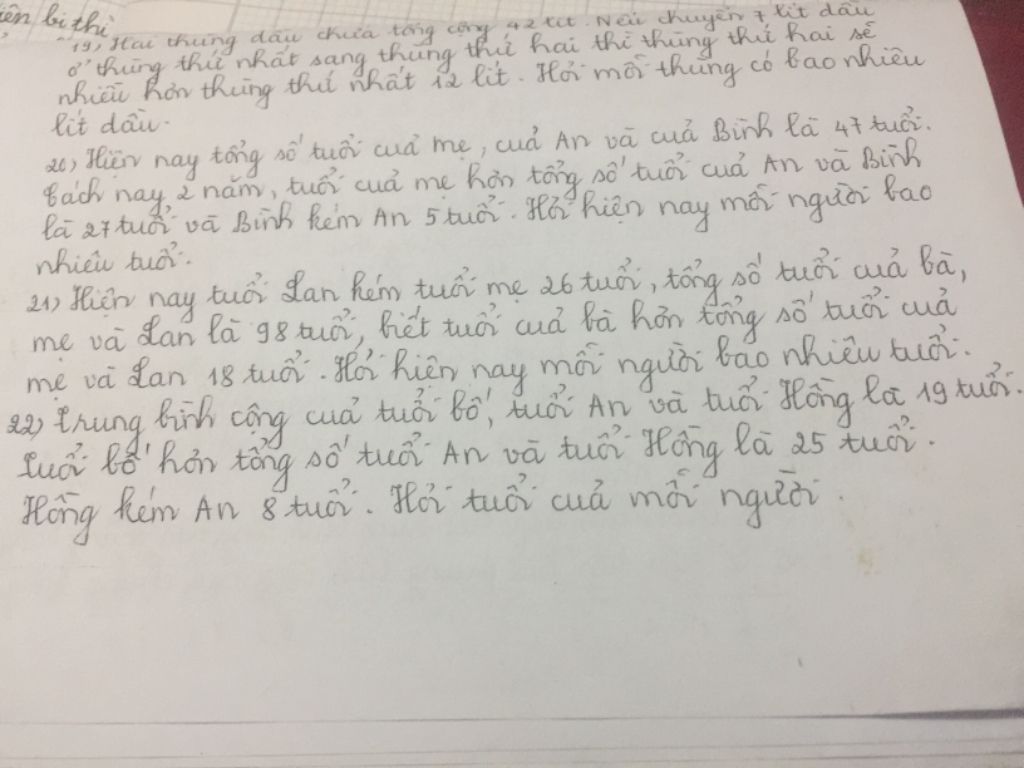 ên bi thì
19) Hai thùng dầu chứa tổng cộng 42 lít. Nếu chuyển 7 lít dầu
ở thùng thứ nhất sang thùng thứ hai thì thùng thứ hai sẽ
nhiều hơn thùng thứ nhất 12 lít. Hỏi mỗi thùng có bao nhiêu
lít dầu.
20) Hiện nay tổng số tuổi của mẹ, của An và của Bình là 47 tuổi.
Cách nay 2 năm, tuổi của mẹ hơn tổng số tuổi của An và Bình
là 27 tuổi và Bình kém An 5 tuổi. Hỏi hiện nay mỗi người bao
nhiêu tuổi.
21) Hiện nay tuổi Lan kém tuổi mẹ 26 tuổi, tổng số tuổi của bà,
mẹ và Lan là 98 tuổi, biết tuổi của bà hơn tổng số tuổi của
mẹ và Lan 18 tuổi. Hỏi hiện nay mỗi người bao nhiêu tuổi.
22) Trung bình cộng của tuổi bố, tuổi An và tuổi Hồng là 19 tuổi.
Tuổi bố hơn tổng số tuổi An và tuổi Hồng là 25 tuổi.
Hồng kém An 8 tuổi. Hỏi tuổi của mỗi người.